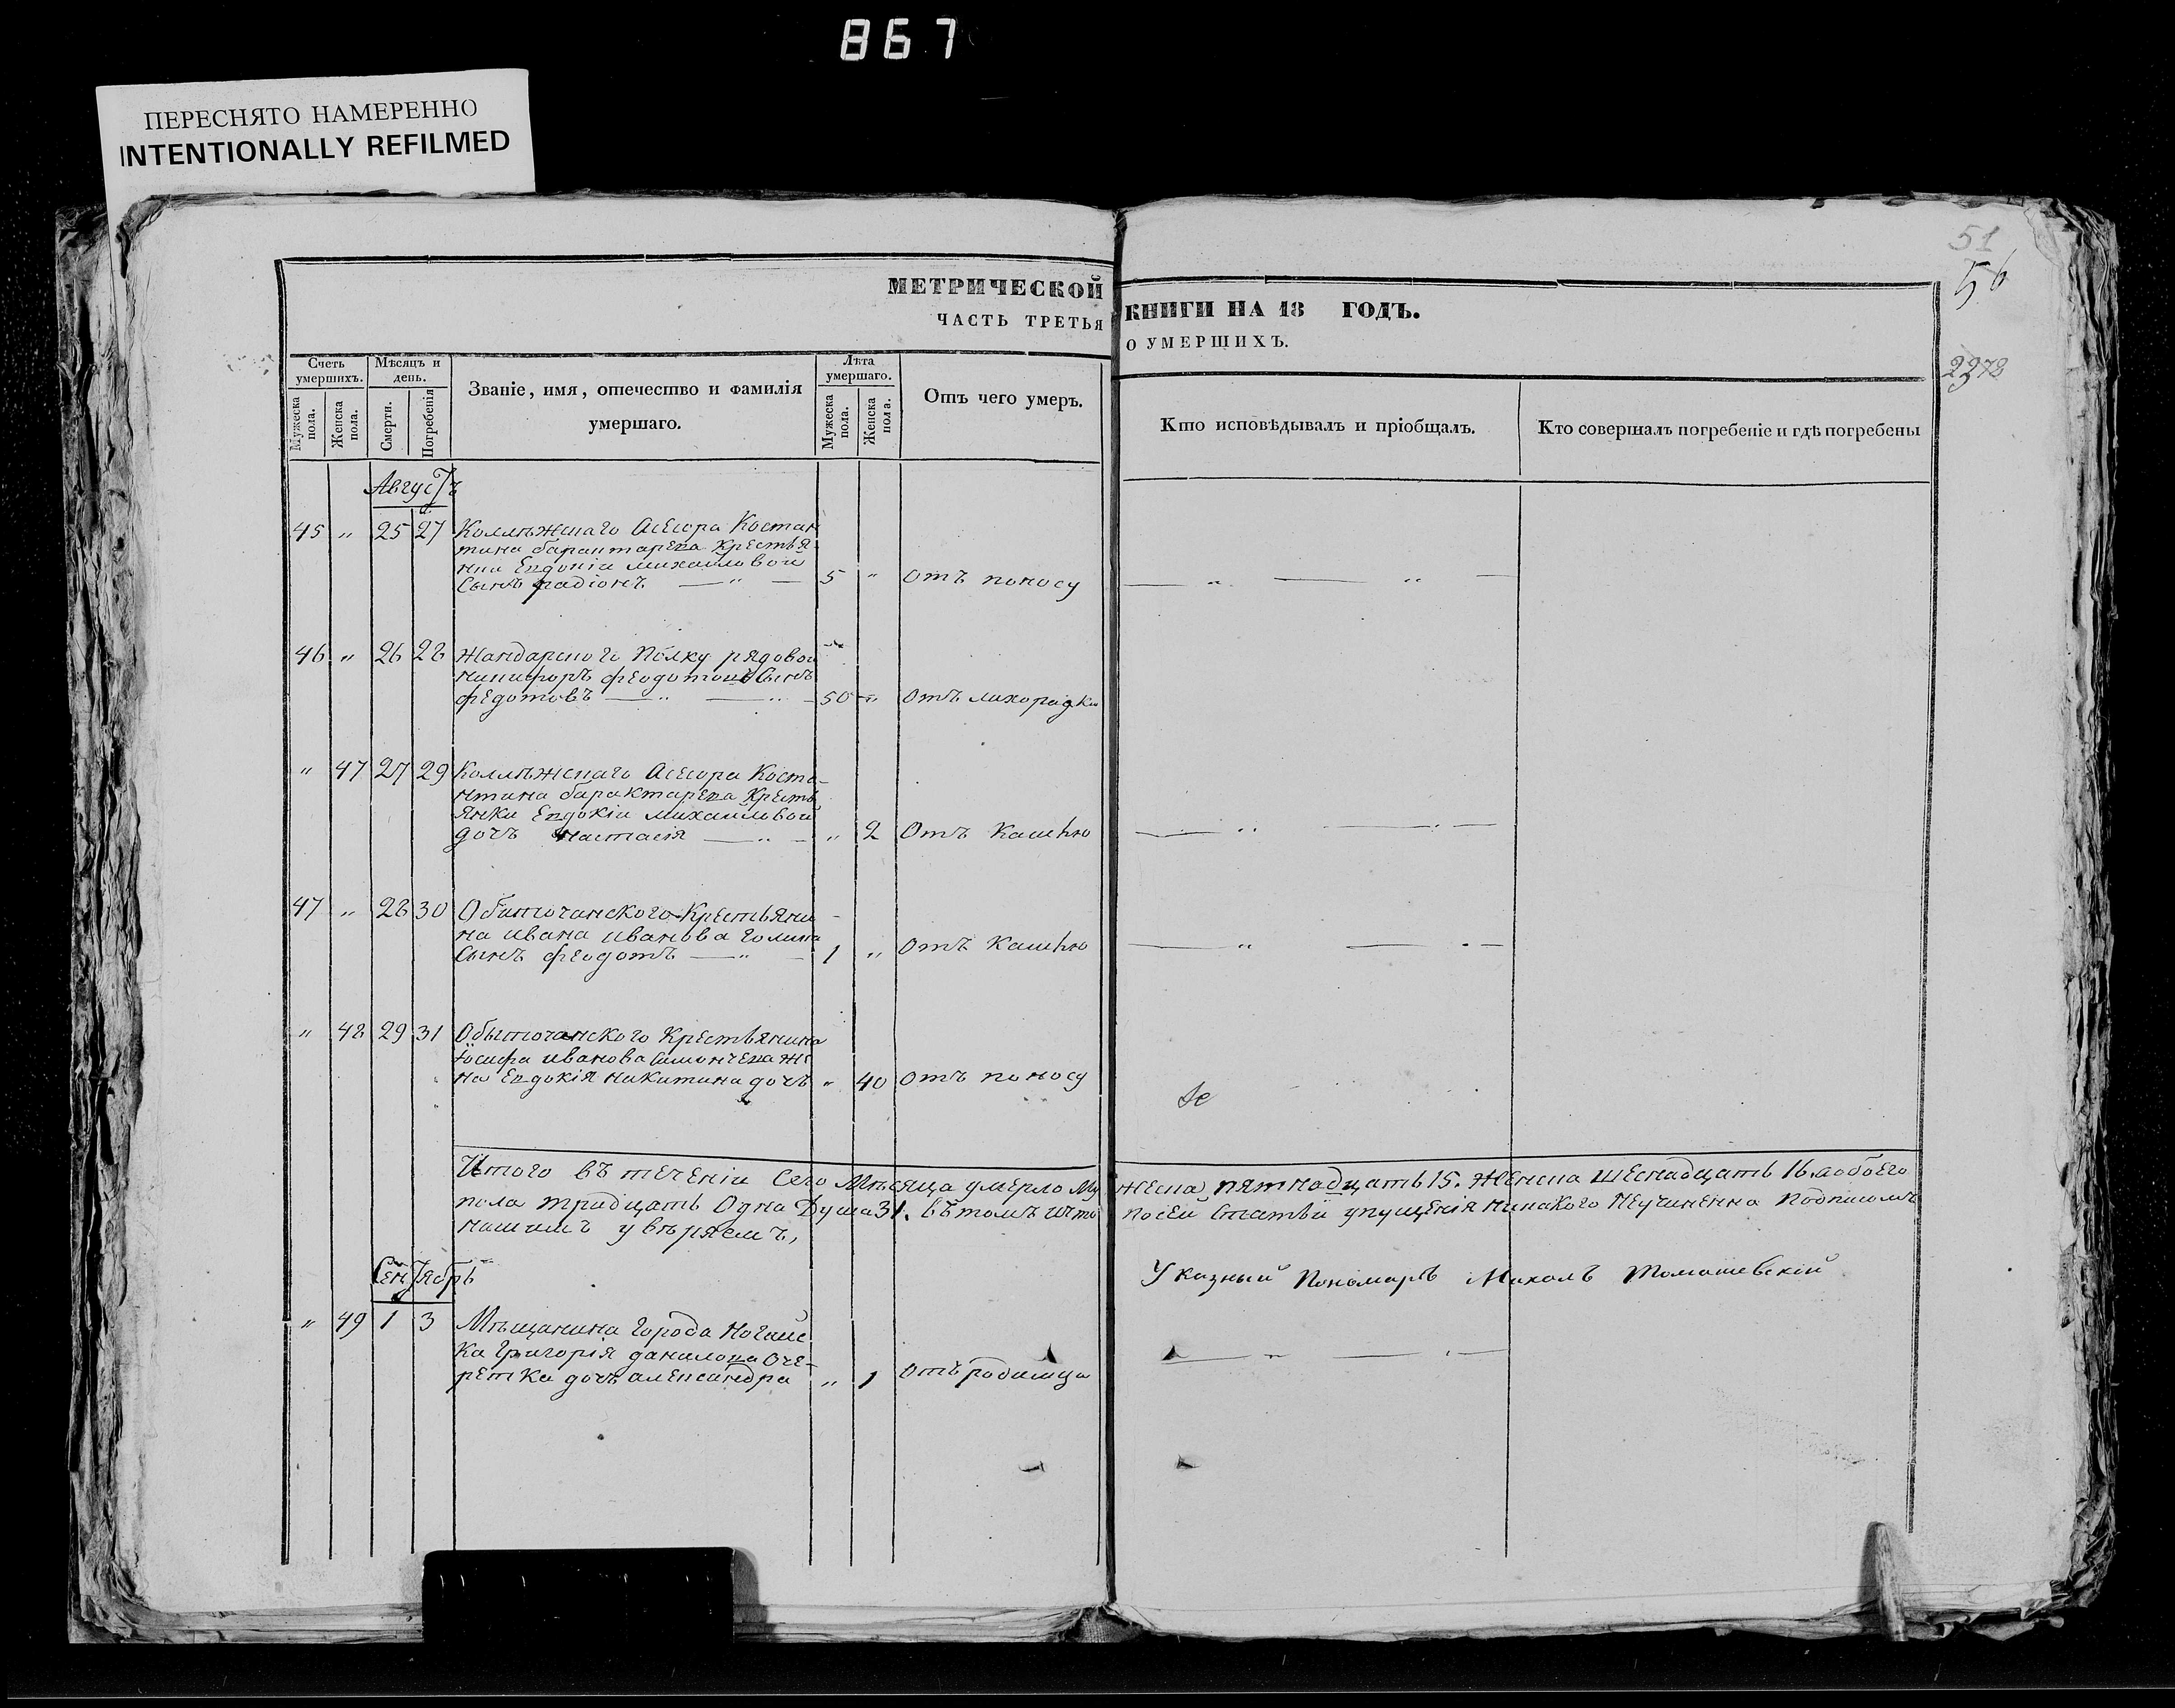 867
ПЕРЕСНЯТО НАМЕРЕННО
INTENTIONALLY REFILMED
51
56
МЕТРИЧЕСКОЙ КНИГИ НА 18 ГОДЪ.
ЧАСТЬ ТРЕТЬЯ О УМЕРШИХЪ.
2378
Счетъ умершихъ.
Мужеска пола.
Женска пола.
Мѣсяцъ и день.
Смерти.
Погребенія
Званіе, имя, отечество и фамилія
умершаго.
Лѣта умершаго.
Мужеска пола.
Женска пола.
Отъ чего умеръ.
Кто исповѣдывалъ и пріобщалъ.
Кто совершалъ погребеніе и гдѣ погребены
Августъ
45 " 25 27 Коллѣжскаго Асесора Костан
тина барактарева Крестья
нки Евдокіи михаиловой
Сынъ радіонъ — " — 5 " Отъ поносу
46 " 26 28 Жандарского Полку рядовои
никифоръ феодотовъ Сынъ
федотовъ — " — 50 " Отъ лихорадки
" 47 27 29 Коллѣжскаго Асесора Коста-
нтина барактарева Кресть
янки Евдокіи михаиловой
дочъ настасія — " 2 Отъ Кашлю
47 " 28 30 Обиточанского Крестьяни
на ивана иванова голика
Сынъ феодотъ — " — 1 " Отъ Кашлю
" 48 29 31 Обыточанского Крестьянина
Іосифа иванова Симончева же
на Евдокія никитина дочъ " 40 Отъ поносу
Итого въ теченіи Сего Мѣсяца умерло Му жеска пятнадцать 15. Женска шеснадцать 16. а обоего
пола тридцать Одна Душа 31. въ томъ что по сеи Статьи упущенія никакого Неучиненно подписомъ
нашимъ увѣряемъ,
Указный Пономаръ Михаилъ Томашевскій
Сентябрь
" 49 1 3 Мѣщанина города Ногайс
ка григорія данилова Оче-
ретка дочъ александра " 1 Отъ родимца